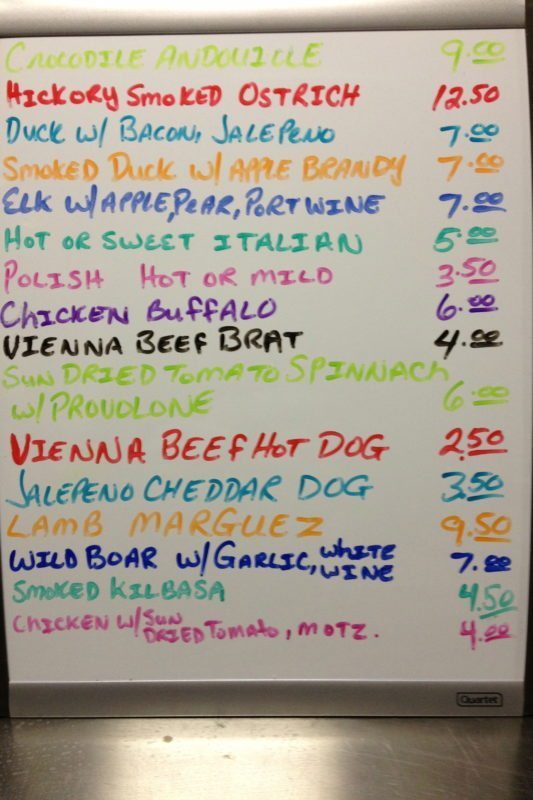 CROCODILE ANDOUILLE 9.00
HICKORY SMOKED OSTRICH 12.50
DUCK W/ BACON, JALEPENO 7.00
SMOKED DUCK W/ APPLE BRANDY 7.00
ELK W/ APPLE, PEAR, PORT WINE 7.00
HOT OR SWEET ITALIAN 5.00
POLISH HOT OR MILD 3.50
CHICKEN BUFFALO 6.00
VIENNA BEEF BRAT 4.00
SUN DRIED TOMATO SPINNACH
W/ PROVOLONE 6.00
VIENNA BEEF HOT DOG 2.50
JALEPENO CHEDDAR DOG 3.50
LAMB MARGUEZ 9.50
WILD BOAR W/ GARLIC, WHITE
WINE 7.00
SMOKED KILBASA 4.50
CHICKEN W/ SUN
DRIED TOMATO, MOTZ. 4.00
Quartet